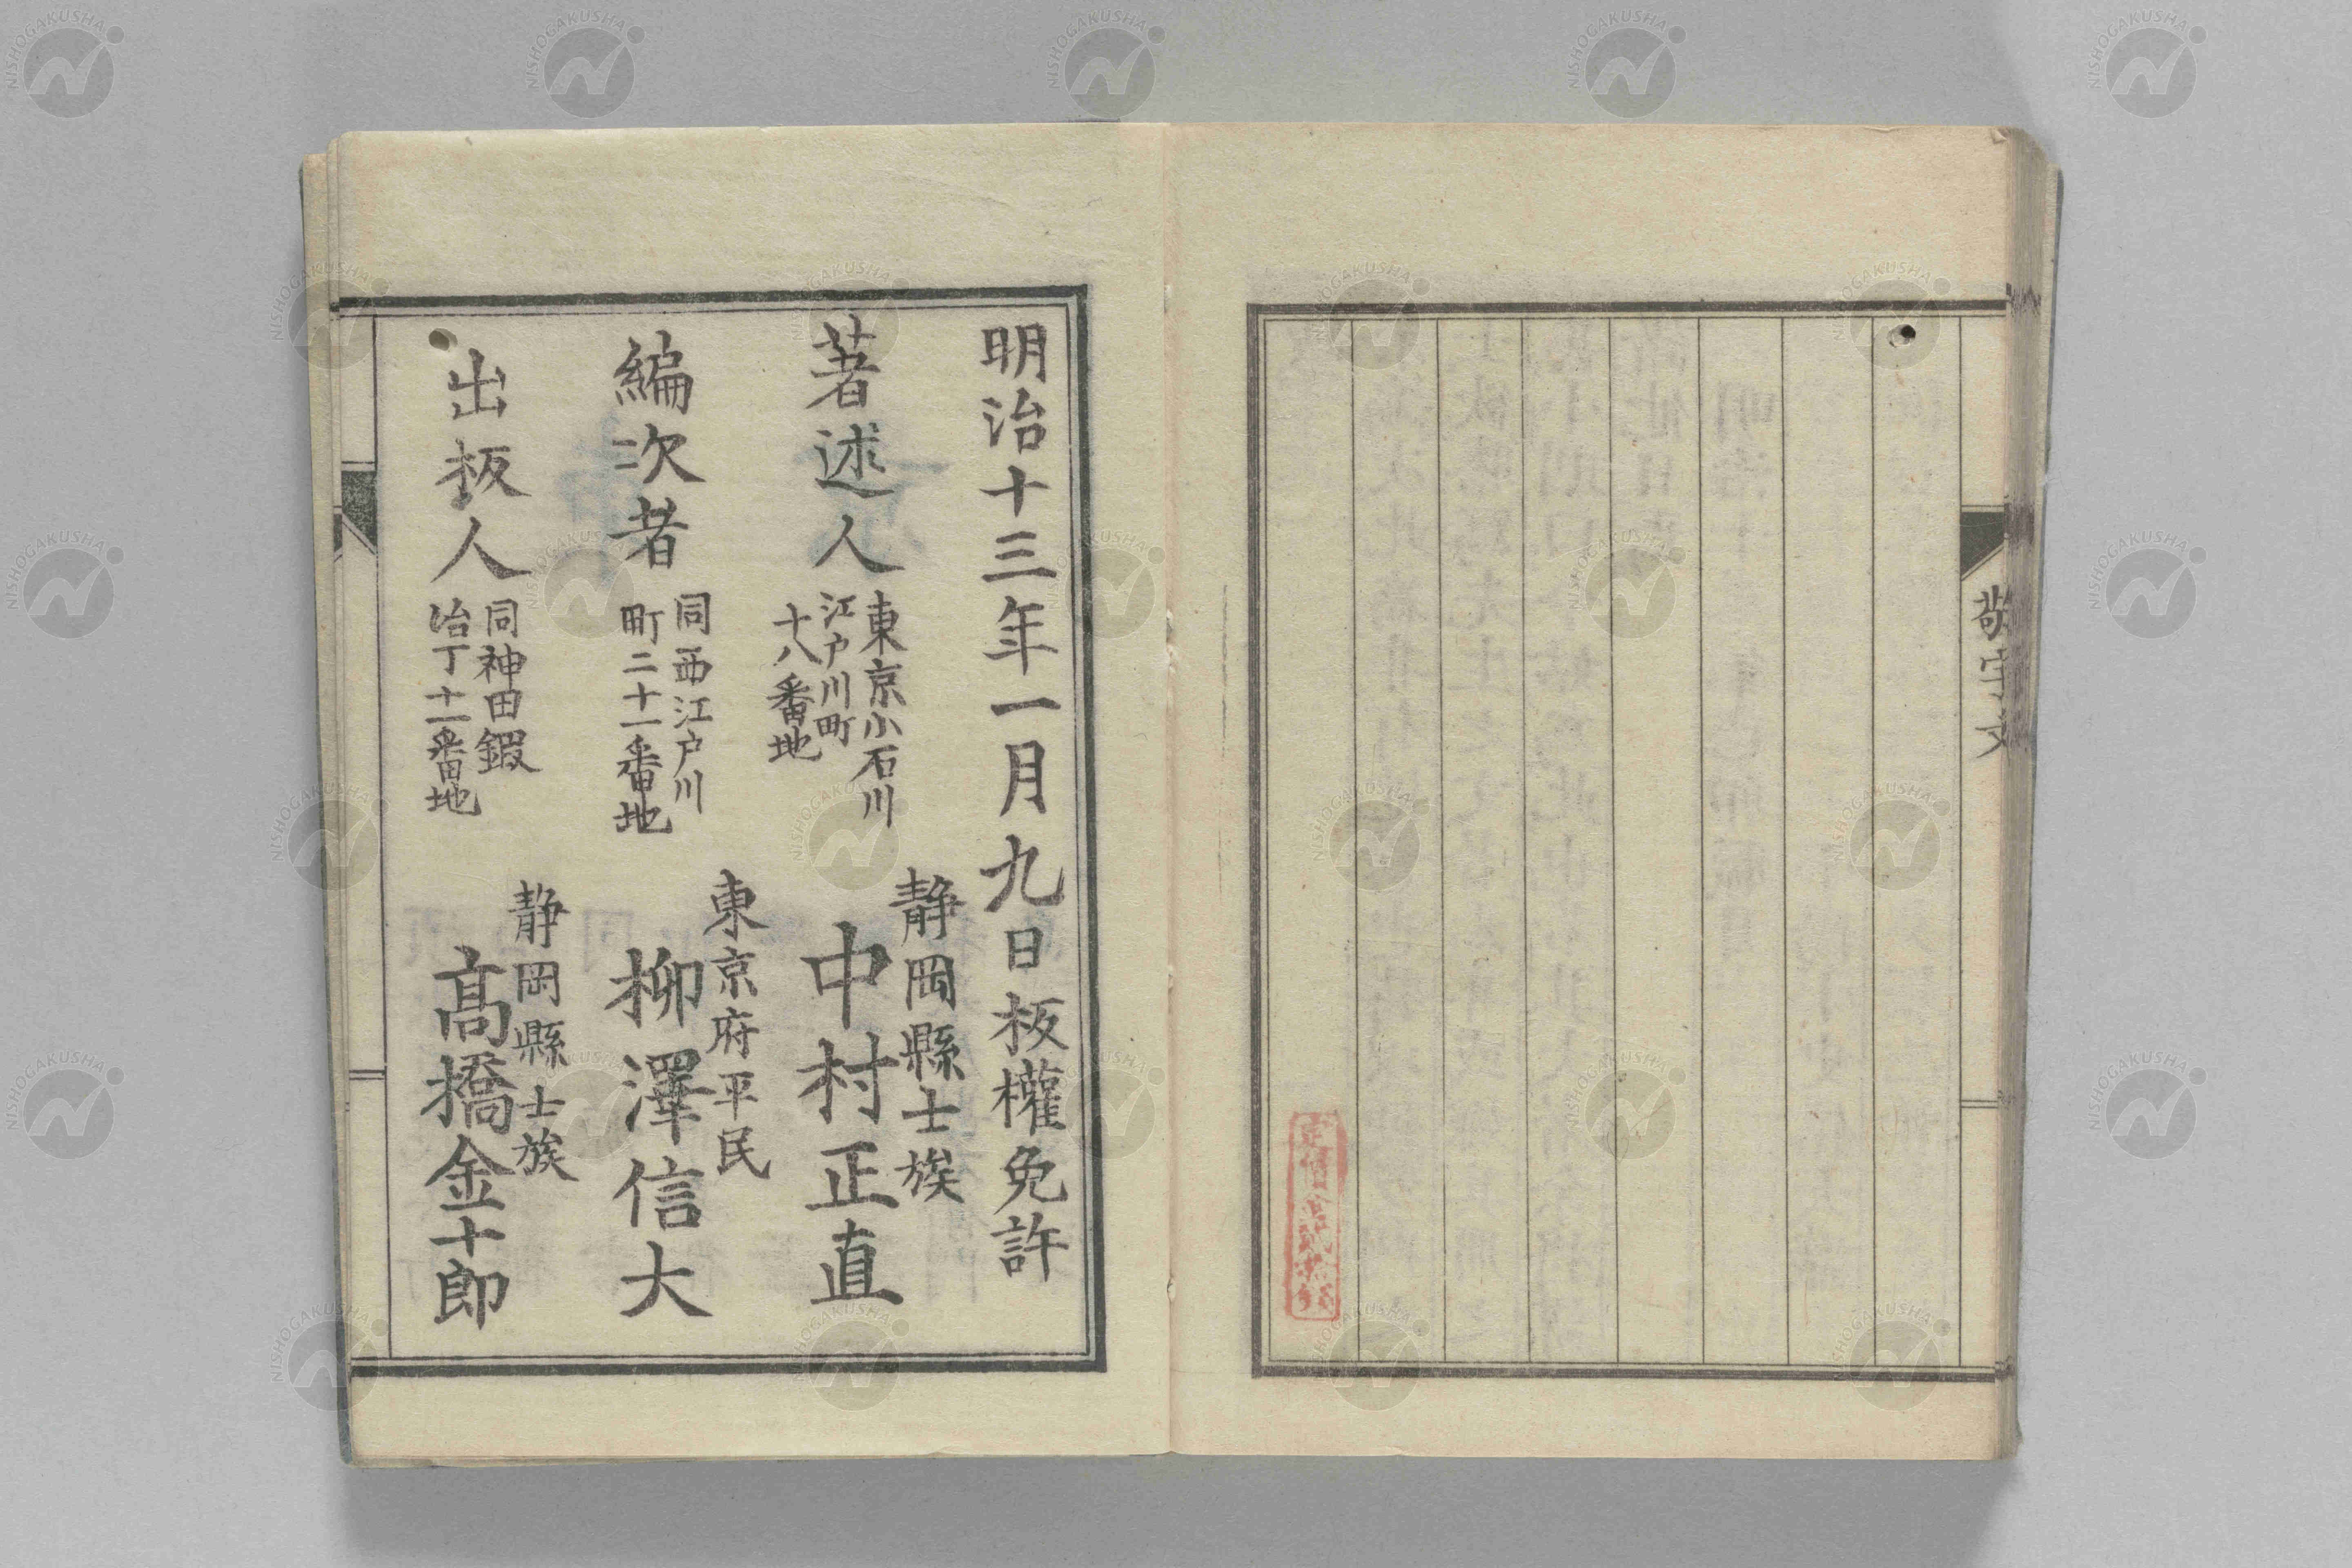 敬宇文
明治十三年一月九日板權免許
著述人
東京小石川
江戸川町
十八番地
静岡縣士族
中村正直
編次者
同西江戸川
町二十一番地
東京府平民
柳澤信大
出板人
同神田鍜
冶丁十一番地
静岡縣士族
髙橋金十郎
NISHOGAKUSHA